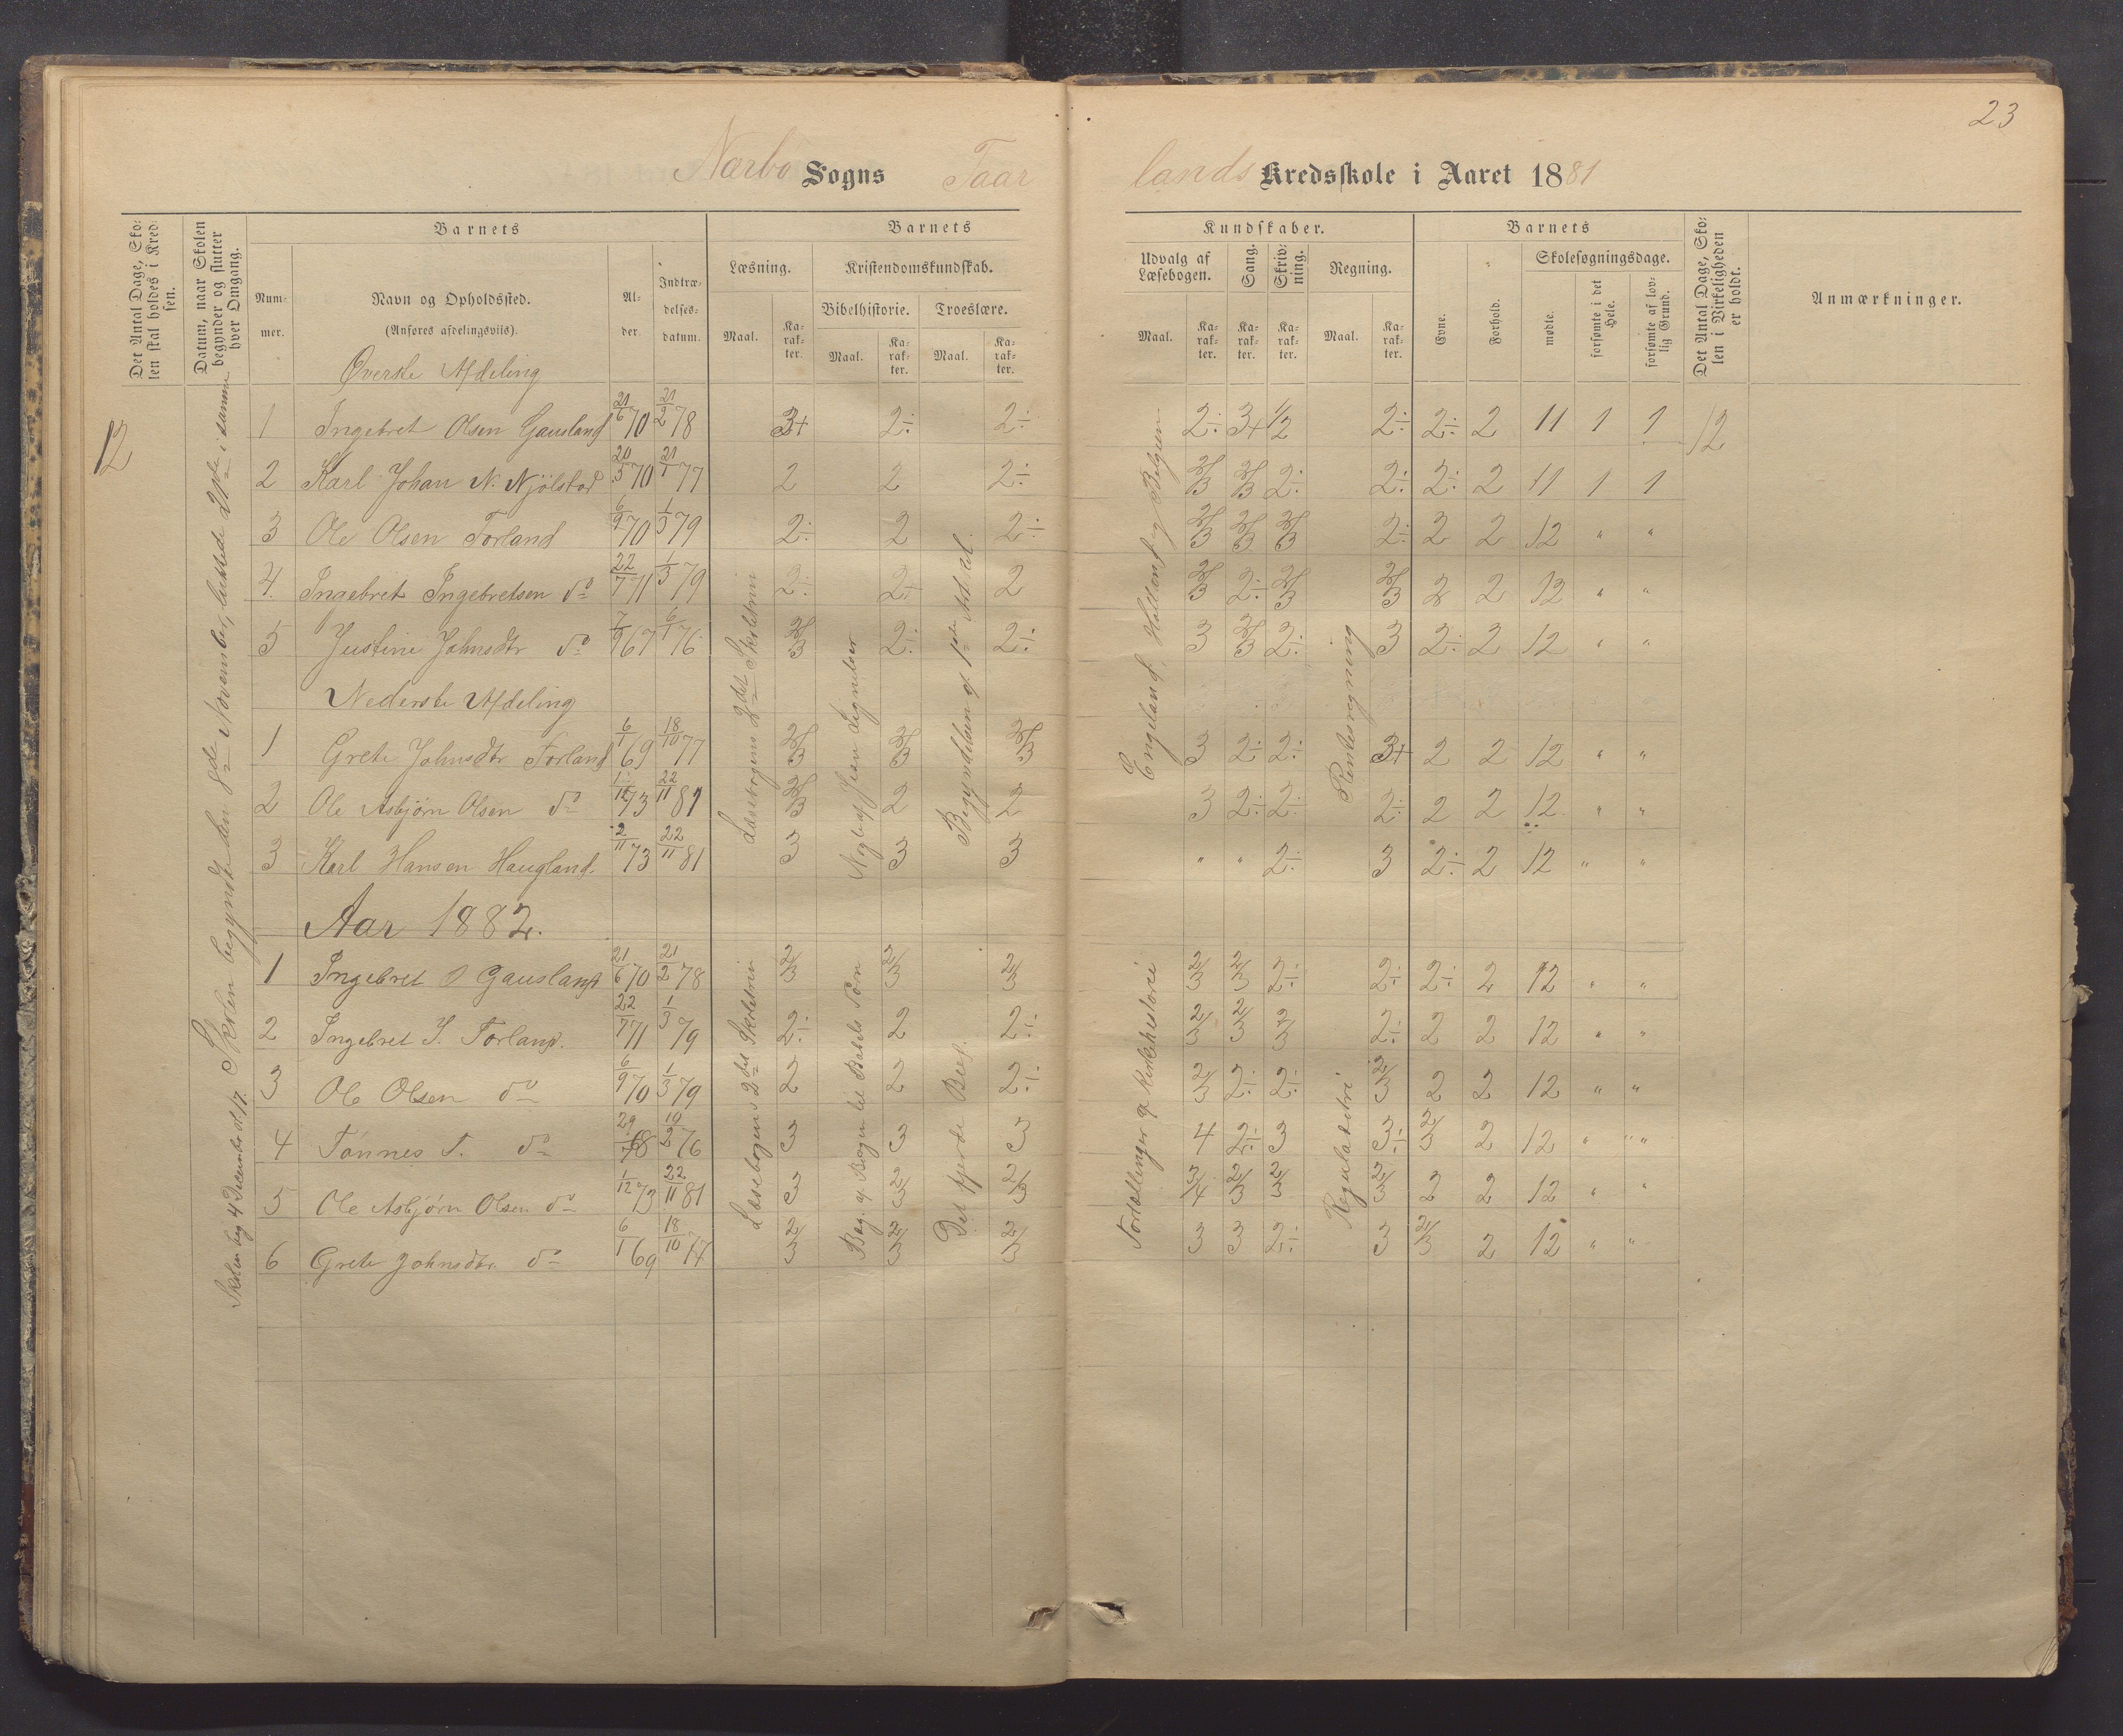 23
Nærbø Sogns Taarlands Kredsskole i Aaret 1881
Det Antal Dage, Skolen skal holdes i Kredsen.
Datum, naar Skolen begynder og slutter hver Omgang.
Barnets
Nummer.
Navn og Opholdssted.
(Anføres afdelingsviis).
Alder.
Indtrædelsesdatum.
Barnets
Læsning.
Maal.
Karakter.
Kristendomskundskab.
Bibelhistorie.
Maal.
Karakter.
Troeslære.
Maal.
Karakter.
Kundskaber.
Udvalg af Læsebogen.
Maal.
Karakter.
Sang.
Karakter.
Skrivning.
Karakter.
Regning.
Maal.
Karakter.
Barnets
Evne.
Forhold.
Skolesøgningsdage.
mødte.
forsømte i det Hele.
forsømte af lovlig Grund.
Det Antal Dage, Skolen i Virkeligheden er holdt.
Anmærkninger.
Øverste Afdeling
12
Skolen begyndte den 8de November, sluttede 21de i samme
1 Ingebret Olsen Gausland 21/6 70 21/2 78 3+ 2÷ 2÷ 2÷ 3+ 1/2 2÷ 2÷ 2 11 1 1 12
2 Karl Johan N. Njölstad 20/5 70 21/1 77 2 2 2÷ 2/3 2/3 2÷ 2÷ 2÷ 2 11 1 1
3 Ole Olsen Torland 6/9 70 1/3 79 2÷ 2 2÷ 2/3 2/3 2/3 2÷ 2 2 12 " "
4. Ingebret Ingebretsen do 22/7 71 1/3 79 2÷ 2÷ 2 2/3 2÷ 2/3 2/3 2 2 12 " "
5 Justine Johnsdtr do 7/9 67 6/1 76 2/3 2÷ 2÷ 3 2/3 2÷ 3 2÷ 2 12 " "
Nederste Afdeling
1 Grete Johnsdtr Torland 6/1 69 18/10 77 2/3 2/3 2/3 3 2÷ 2÷ 3+ 2 2 12 " "
2 Ole Asbjørn Olsen do 1/12 73 22/11 81 2/3 2 2 3 2÷ 2÷ 2÷ 2 2 12 " "
3 Karl Hansen Haugland. 2/11 73 22/11 81 3 3 3 " " 2÷ 3 2÷ 2 12 " "
Læsebogens 2det Skoletrin
Nogle af Jesu Lignelser
Begyndelsen af 1ste Artikel.
Engeland, Holland og Belgien
Rentesregning
Aar 1882.
Skolen beg 4 December sl. 17.
1 Ingebret O Gausland 21/6 70 21/2 78 2/3 2/3 2/3 2/3 2/3 2÷ 2÷ 2÷ 2 12 " "
2 Ingebret I. Torland. 22/7 71 1/3 79 2÷ 2 2÷ 2/3 2/3 2/3 2÷ 2 2 12 " "
3 Ole Olsen do 6/9 70 1/3 79 2 2 2÷ 2/3 2÷ 2÷ 2/3 2 2 12 " "
4 Tønnes T. do 3 3 3 4 2÷ 3 3÷ 2/3 2 12 " "
5 Ole Asbjørn Olsen do 1/12 73 22/11 81 3 2/3 2/3 3/4 2/3 2/3 2/3 2 2 12 " "
6 Grete Johnsdtr do 6/1 69 18/10 77 2/3 2/3 2/3 3 3 2÷ 3 2/3 2 12 " "
Læsebogens 2det Skoletrin
Beg. af Bogen til Babels Taarn
Det fjerde Bud.
Fortællinger af Kirkehistorie
Regula detri